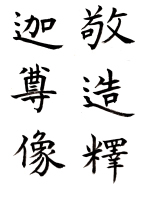 敬造釋
迦尊像